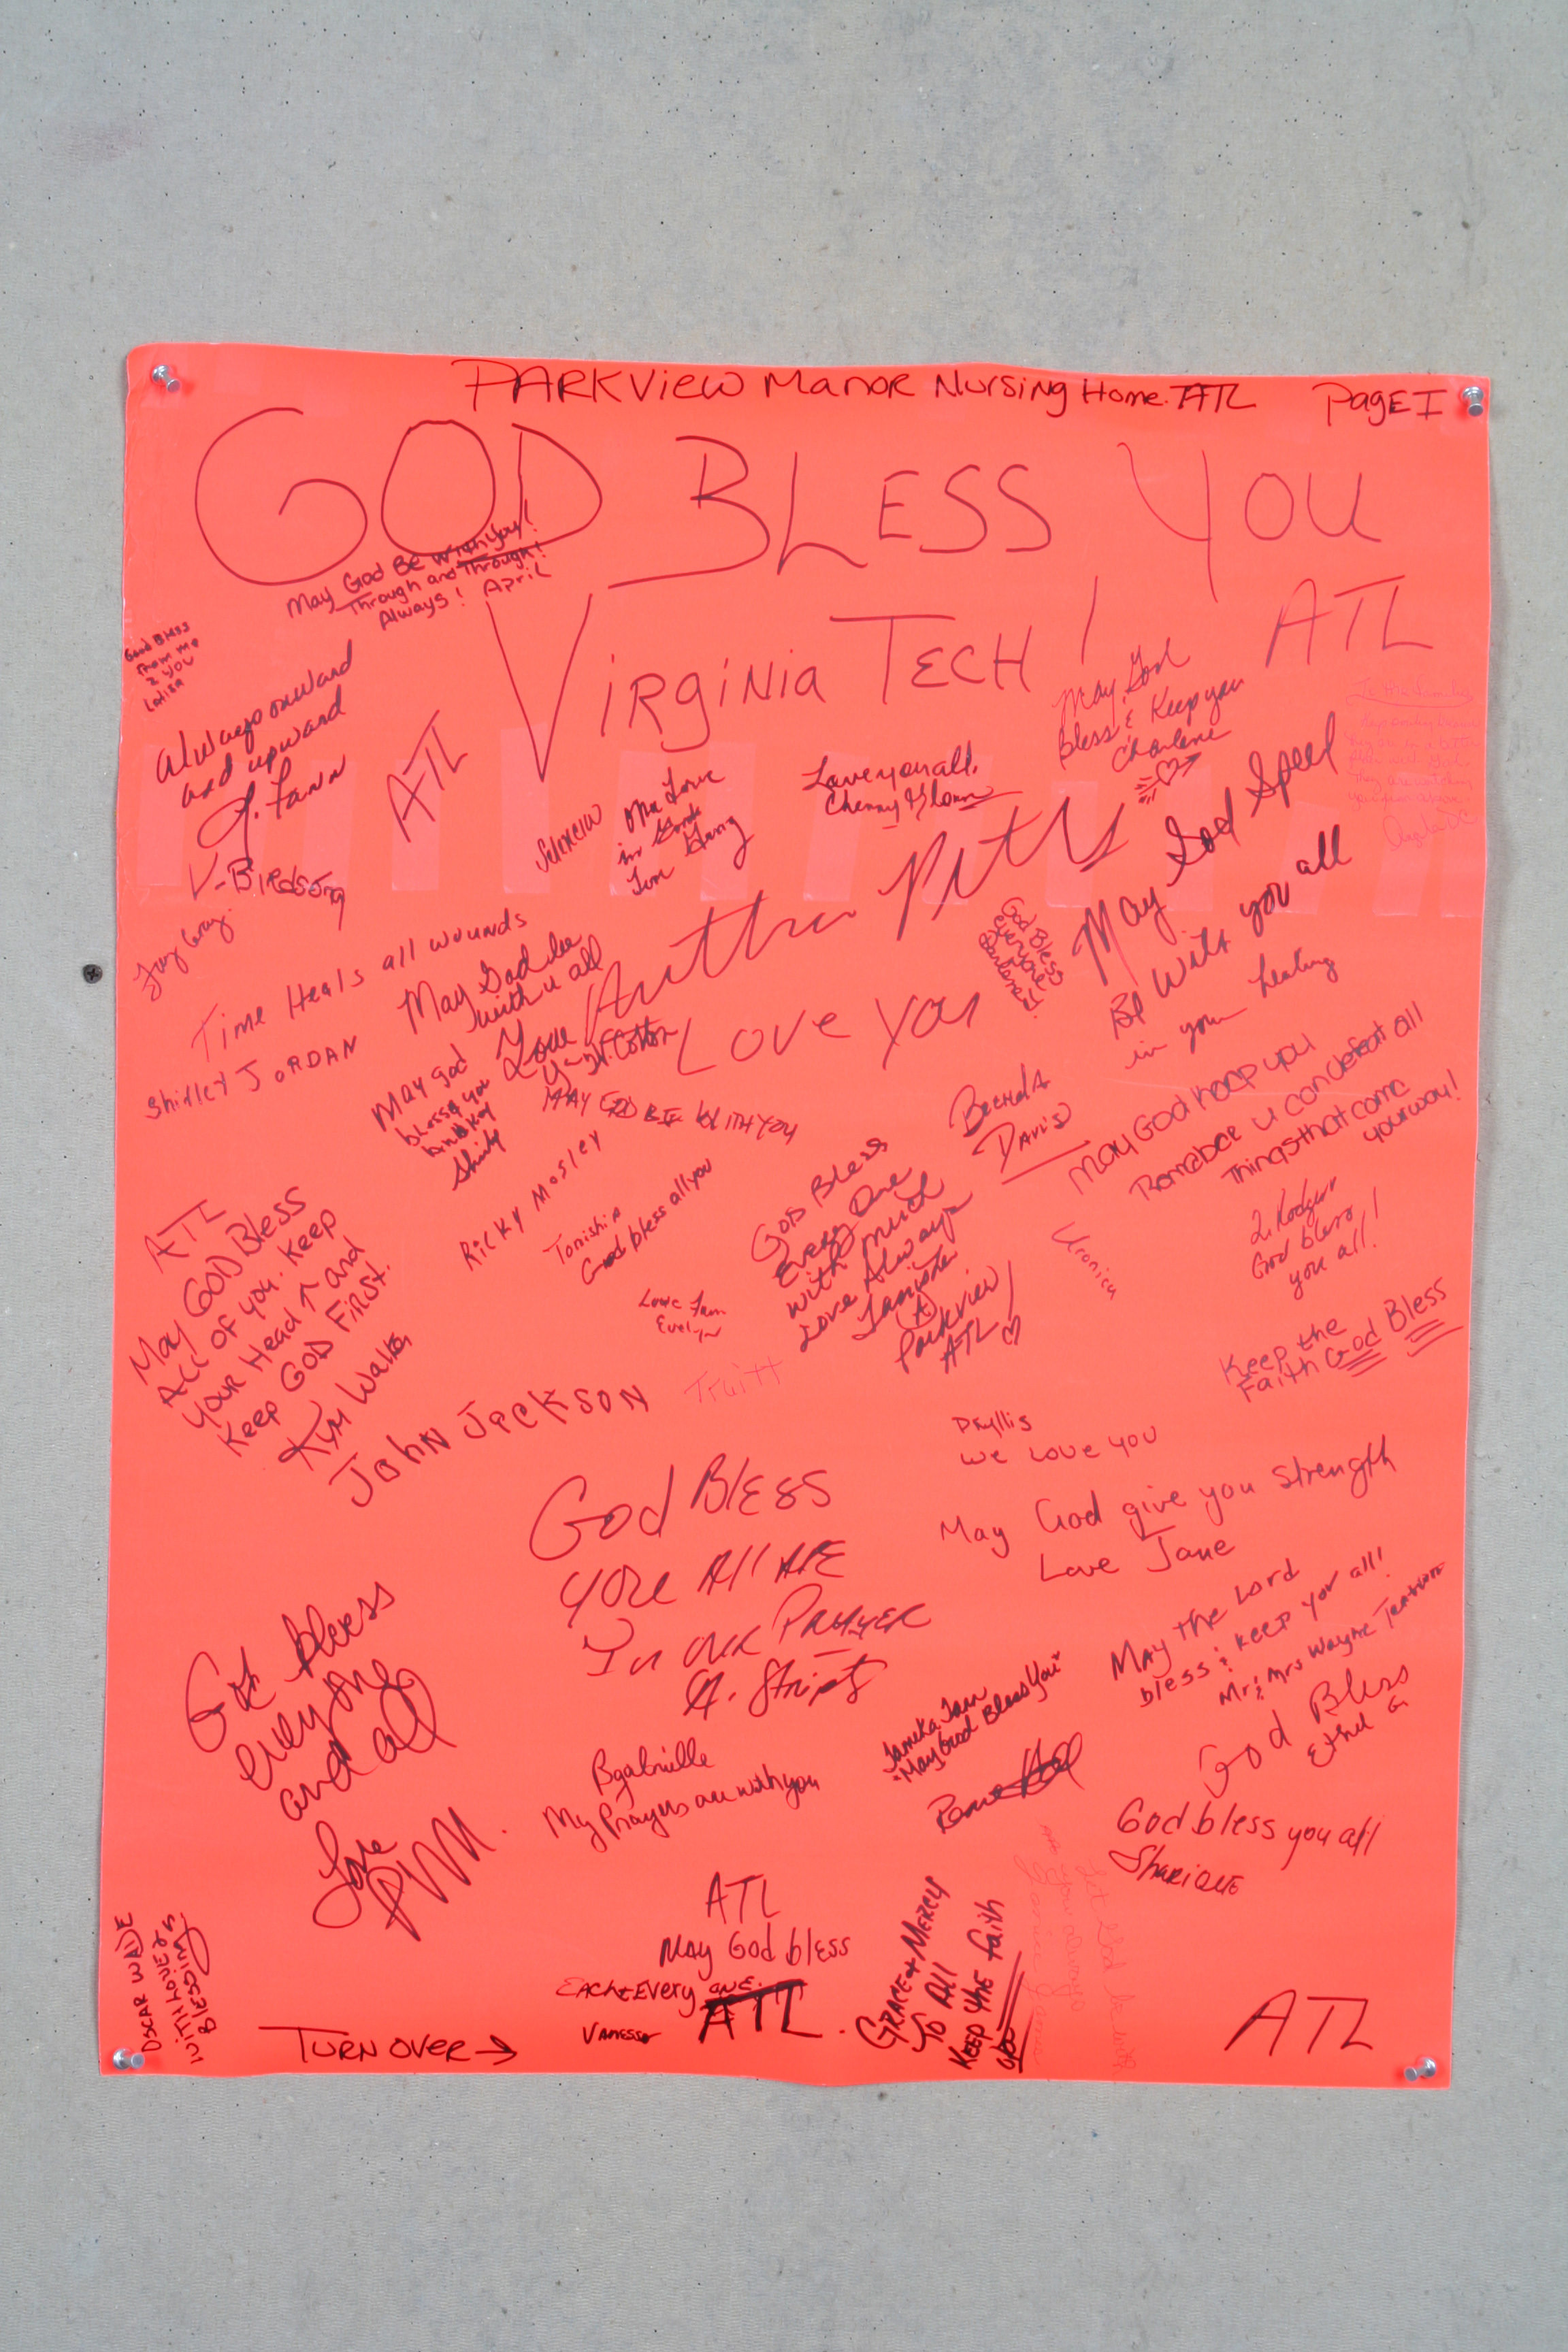 PARKVIEW Manor Nursing Home. ATL
Page I
GOD BLESS YOU
VIRGINIA TECH!
ATL
May God Be With You!
Through and Through!
Always! April
God Bless
From me
2 you
Always onward
and upward
J. Fann
ATL
V-Birdsong
May God
Bless & Keep you
Charlene
Love you all.
May God Speed
Be with you all
in your healing
Time Heals all wounds
Shirley JORDAN
May God be
with u all
Love
God Bless
everyone
Love You
May god
bless you
Shirley
MAY GOD BE WITH YOU
Ricky Mosley
God bless all you
Bertha
Davis
May God keep you
u can defeat all
Things that come
your way!
ATL
May GOD Bless
All of you. Keep
your Head ↑ and
Keep GOD First.
Kym Walker
God Bless
Every One
with much
Love Always
Parkview
ATL
God bless
you all!
Love
Evelyn
Truitt
Keep the
Faith God Bless
John Jackson
Phyllis
we love you
God Bless
You All ARE
In our Prayer
May God give you strength
Love Jane
May the Lord
bless & keep you all!
Mr & Mrs Wayne
God bless
everyone
and all
Love
God Bless
Ethel G
My Prayers are with you
Tameka
"May God Bless You"
God bless you all
Sharique
ATL
May God bless
Each & Every one.
Vanessa
ATL.
Grace & Mercy
To All
Keep the faith
Oscar Wade
With Love &
Blessings
Turn over →
ATL